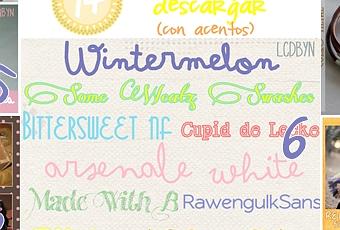 14
descargar
(con acentos)
Wintermelon LCDBYN
Some Weatz Swashes
BITTERSWEET NF Cupid de Locke
6
arsenale white
Made With B RawengulkSans